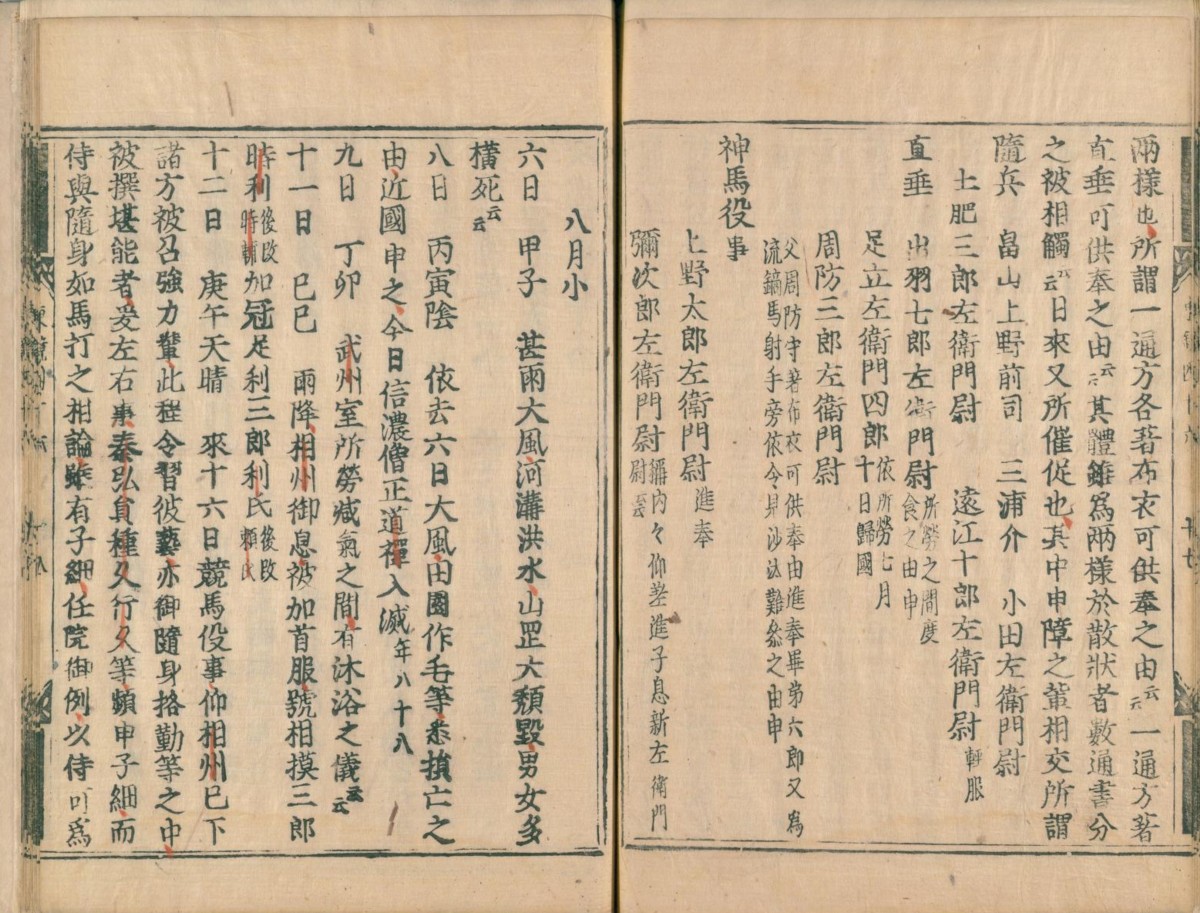 兩樣也所謂一通方各著布衣可供奉之由云云一通方著
直垂可供奉之由云云其體雖爲兩樣於散狀者數通書分
之被相觸云云日來又所催促也其中申障之輩相交所謂
隨兵 畠山上野前司 三浦介 小田左衛門尉
土肥三郎左衛門尉 遠江十郎左衛門尉輕服
直垂 出羽七郎左衛門尉所勞之間度食之由申
足立左衛門四郎依所勞七月十日歸國
周防三郎左衛門尉
父周防守著布衣可供奉由進奉畢弟六郎又爲
流鏑馬射手旁依令見沙汰難參之由申
神馬役事
上野太郎左衛門尉進奉
彌次郎左衛門尉稱内々仰差進子息新左衛門尉云云
八月小
六日 甲子 甚雨大風河溝洪水山罡大頽毀男女多
橫死云云
八日 丙寅陰 依去六日大風田園作毛等悉損亡之
由近國申之今日信濃僧正道禪入滅年八十八
九日 丁卯 武州室所勞減氣之間有沐浴之儀云云
十一日 己巳 雨降相州御息被加首服號相摸三郎
時利後改時輔加冠足利三郎利氏後改賴氏
十二日 庚午天晴 來十六日競馬役事仰相州已下
諸方被召強力輩此程令習彼藝亦御隨身格勤等之中
被撰堪能者爰左右事秦弘員種久行久等頻申子細而
侍與隨身如馬打之相論雖有子細任院御例以侍可爲